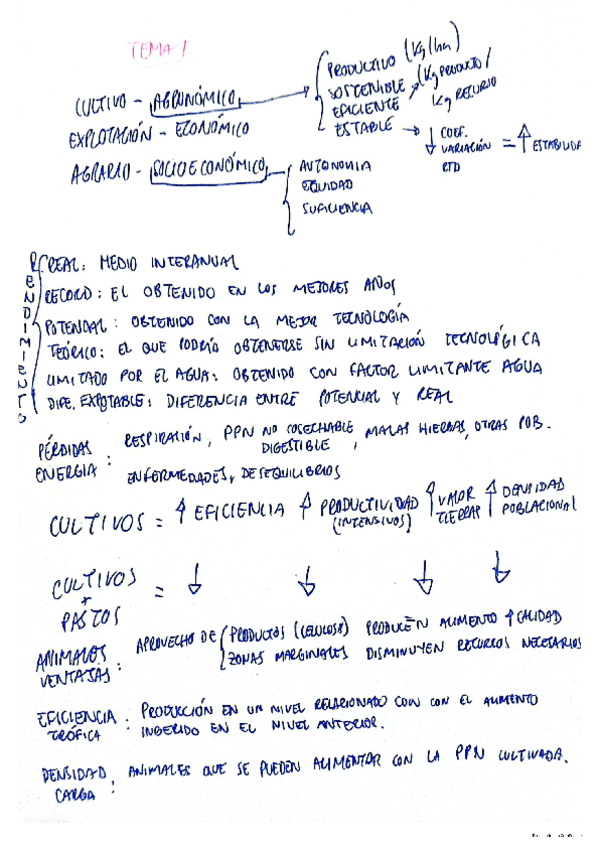 TEMA 1
CULTIVO - AGRONÓMICO
PRODUCTIVO (Kg/ha)
SOSTENIBLE
EFICIENTE (Kg PRODUCTO / Kg RECURSO
ESTABLE → ↓ COEF. VARIACIÓN RTD = ↑ ESTABILIDA
EXPLOTACIÓN - ECONÓMICO
AGRARIO - SOCIOECONÓMICO
AUTONOMIA
EQUIDAD
SUFICIENCIA
RENDIMIENTO
REAL: MEDIO INTERANUAL
RECORD: EL OBTENIDO EN LOS MEJORES AÑOS
POTENCIAL: OBTENIDO CON LA MEJOR TECNOLOGÍA
TEÓRICO: EL QUE PODRÍA OBTENERSE SIN LIMITACIÓN TECNOLÓGICA
LIMITADO POR EL AGUA: OBTENIDO CON FACTOR LIMITANTE AGUA
DIFE. EXPLOTABLE: DIFERENCIA ENTRE POTENCIAL Y REAL
PÉRDIDAS ENERGIA: RESPIRACIÓN, PPN NO COSECHABLE DIGESTIBLE, MALAS HIERBAS, OTRAS POB.
ENFERMEDADES, DESEQUILIBRIOS
CULTIVOS = ↑ EFICIENCIA ↑ PRODUCTIVIDAD (INTENSIVOS) ↑ VALOR TIERRAS ↑ DENSIDAD POBLACIONAL
CULTIVOS + PASTOS = ↓ ↓ ↓ ↓
ANIMALES VENTAJAS: APROVECHO DE PRODUCTOS (CELULOSA) PRODUCEN ALIMENTO ↑ CALIDAD
ZONAS MARGINALES DISMINUYEN RECURSOS NECESARIOS
EFICIENCIA TRÓFICA: PRODUCCIÓN EN UN NIVEL RELACIONADO CON CON EL ALIMENTO
INGERIDO EN EL NIVEL ANTERIOR.
DENSIDAD CARGA: ANIMALES QUE SE PUEDEN ALIMENTAR CON LA PPN CULTIVADA.